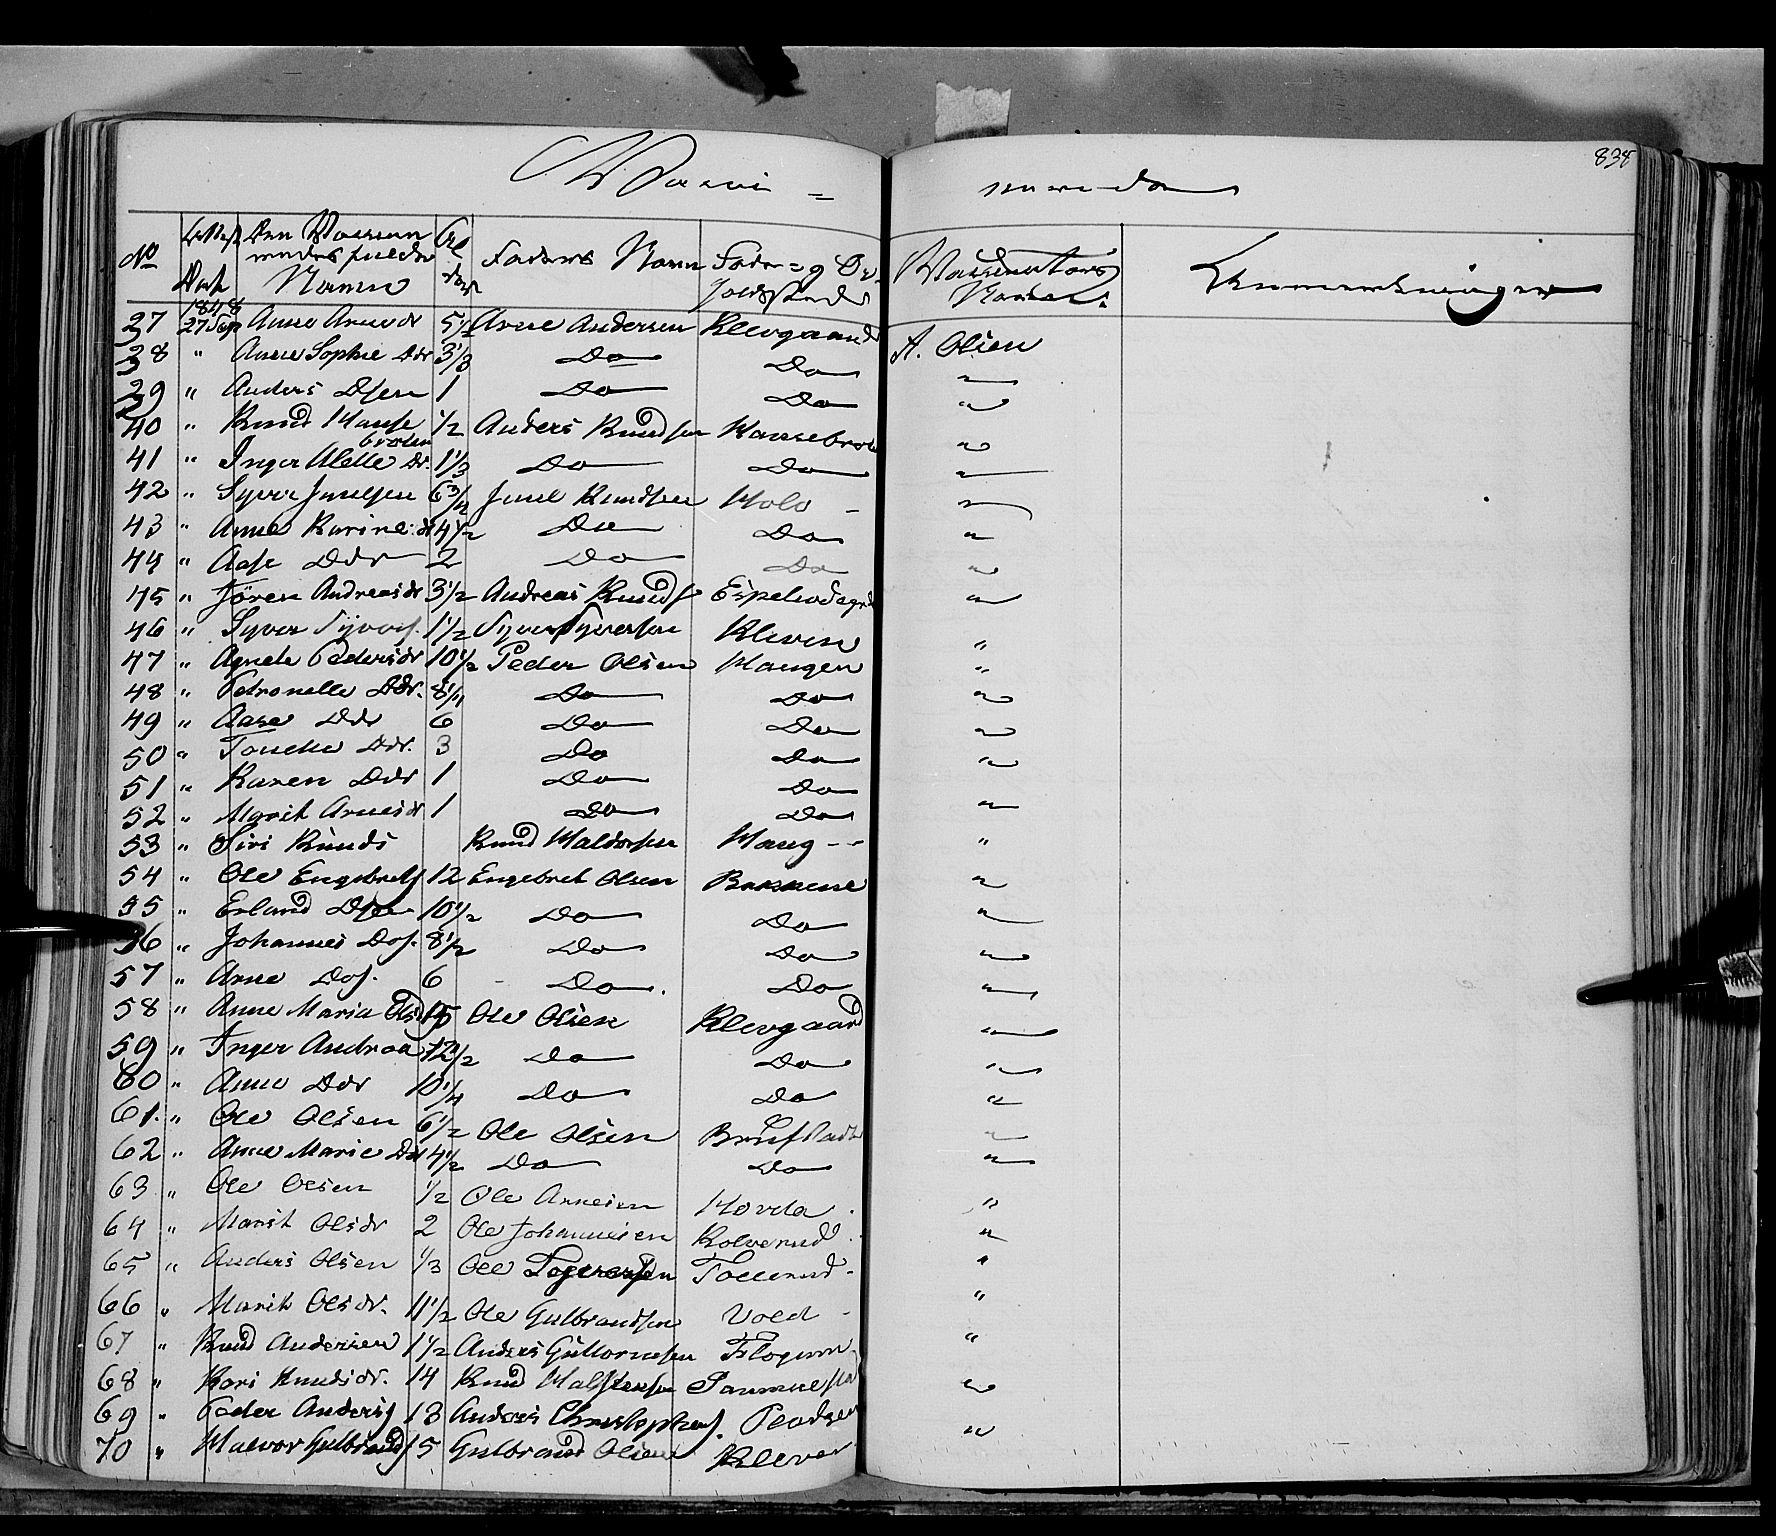 838
Vacci = nerede
No Den Vaccineredes fulde Navn Alder Faders Navn Føde- og Opholdssted Vaccinateurs Navn Anmærkninger
37 1848 27 Sep Anne Arnesdr 5 1/2 Arne Andersen Klevgaard A. Olsen
38 " Anne Sophie Ddr 3 1/3 Do Do "
39 " Anders Dsen 1 Do Do "
40 " Knud Hansebraaten 1/2 Anders Knudsen Hansebraat "
41 " Inger Dr. 1 1/3 Do Do "
42 " Syver Juulsen 6 3/4 Juul Knudsen Holo "
43 " Anne Karine dr 4 1/2 Do Do "
44 " Aase Ddr 2 Do Do "
45 " Jören Andreasdr 3 1/2 Andreas Knuds "
46 " Syver Syvers. 1 1/2 Syver Syversen Kleven "
47 " Agnete Pedersdr 10 1/2 Peder Olsen Haugen "
48 " Petronelle Ddr. 8 1/4 Do Do "
49 " Aase Ddr 6 Do Do "
50 " Ddr. 3 Do Do "
51 " Karen Ddr 1 Do Do "
52 " Marit Arnesdr 1 Do Do "
53 " Siri Knuds Knud Haldorsen Haug "
54 " Ole Engebrets 12 Engebret Olsen "
55 " Erland Dsen 10 1/2 Do Do "
56 " Johannes Dos. 8 1/2 Do Do "
57 " Arne Dos. 6 Do Do "
58 " Anne Maria Olsd 15 Ole Olsen Klevgaard "
59 " Inger Andrea 12 1/2 Do Do "
60 " Anne Ddr 10 1/4 Do Do "
61. " Ole Olsen 6 1/2 Ole Olsen Brufladt "
62 " Anne Marie Dd 4 1/2 Do Do "
63 " Ole Olsen 1/2 Ole Arnesen Hovda "
64 " Marit Olsdr 2 Ole Johannesen Kolverud "
65 " Anders Olsen 1/3 Ole Tollerud "
66 " Marit Olsdr. 11 1/2 Ole Gulbrandsen Vold "
67 " Knud Andersen 1 1/2 Anders Guttormsen "
68 " Kari Knudsdr. 14 Knud "
69 " Peder Anders 13 Anders Christophers. "
70 " Halvor Gulbrands 5 Gulbrand Olsen Kleven